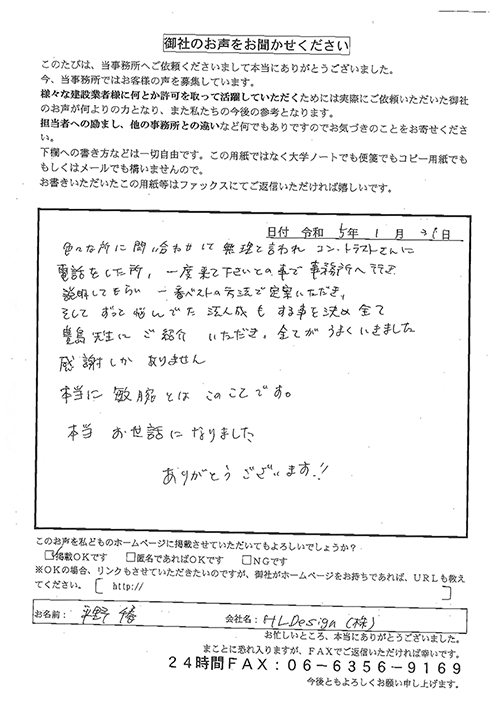 御社のお声をお聞かせください
このたびは、当事務所へご依頼くださいまして本当にありがとうございました。
今、当事務所ではお客様の声を募集しています。
様々な建設業者様に何とか許可を取って活躍していただくためには実際にご依頼いただいた御社
のお声が何よりの力となり、また私たちの今後の参考となります。
担当者への励まし、他の事務所との違いなど何でもありますのでお気づきのことをお寄せくださ
い。
下欄への書き方などは一切自由です。この用紙ではなく大学ノートでも便箋でもコピー用紙でも
もしくはメールでも構いませんので。
お書きいただいたこの用紙等はファックスにてご返信いただければ嬉しいです。
日付 令和 5年 1月 31日
色々な所に問い合わせして無理と言われ コントラストさんに
電話をした所、一度来て下さいとの事で事務所へ行き
説明してもらい 一番ベストの方法で定案いただき、
そして ずっと悩んでた 法人成も する事を決め 全て
豊島先生に ご紹介 いただき、全てが うまくいきました
感謝しか ありません
本当に 敏腕とは このことです。
本当 お世話になりました
ありがとうございます!!
このお声を私どものホームページに掲載させていただいてもよろしいでしょうか?
☑掲載OKです □匿名であればOKです □NGです
※OKの場合、リンクもさせていただきたいのですが、御社がホームページをお持ちであれば、URLも教え
てください。[ http:// ]
お名前: 平野 会社名: HLDesign (株)
お忙しいところ、本当にありがとうございました。
まことに恐れ入りますが、FAXでご返信いただければ幸いです。
24時間FAX:06-6356-9169
今後ともよろしくお願い申し上げます。